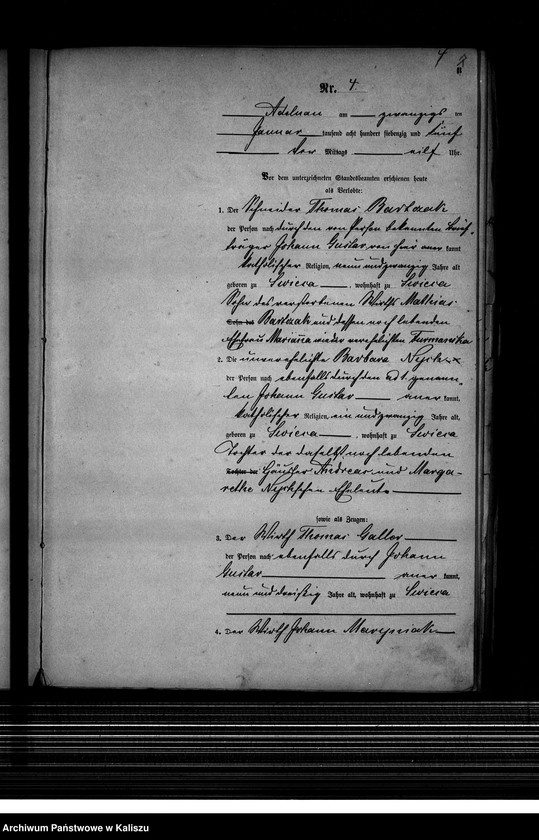 4
Nr. 4.
Adelnau am zwanzigs ten
Januar tausend acht hundert siebenzig und fünf
Vor Mittags eilf Uhr.
Vor dem unterzeichneten Standesbeamten erschienen heute
als Verlobte:
1. Der Schneider Thomas
der Person nach durch den von Person bekannten Brief-
träger Johann Gustav von hier aner kannt,
katholischer Religion, neun und zwanzig Jahre alt
geboren zu Swieca, wohnhaft zu Swieca
Sohn des verstorbenen Wirths Matthias
Sohn des und dessen noch lebenden
Ehefrau Marianna wieder verehelichten
2. Die unverehelichte Barbara
der Person nach ebenfalls durch den ad 1 genann-
ten Johann Gustav aner kannt,
katholischer Religion, ein und zwanzig Jahre alt,
geboren zu Swieca, wohnhaft zu Swieca
Tochter der daselbst noch lebenden
Tochter der Häusler Andreas und Marga-
rethe Eheleute
sowie als Zeugen:
3. Der Wirth Thomas Galler
der Person nach ebenfalls durch Johann
Gustav aner kannt,
neun und dreißig Jahre alt, wohnhaft zu Swieca
4. Der Wirth Johann
Archiwum Państwowe w Kaliszu